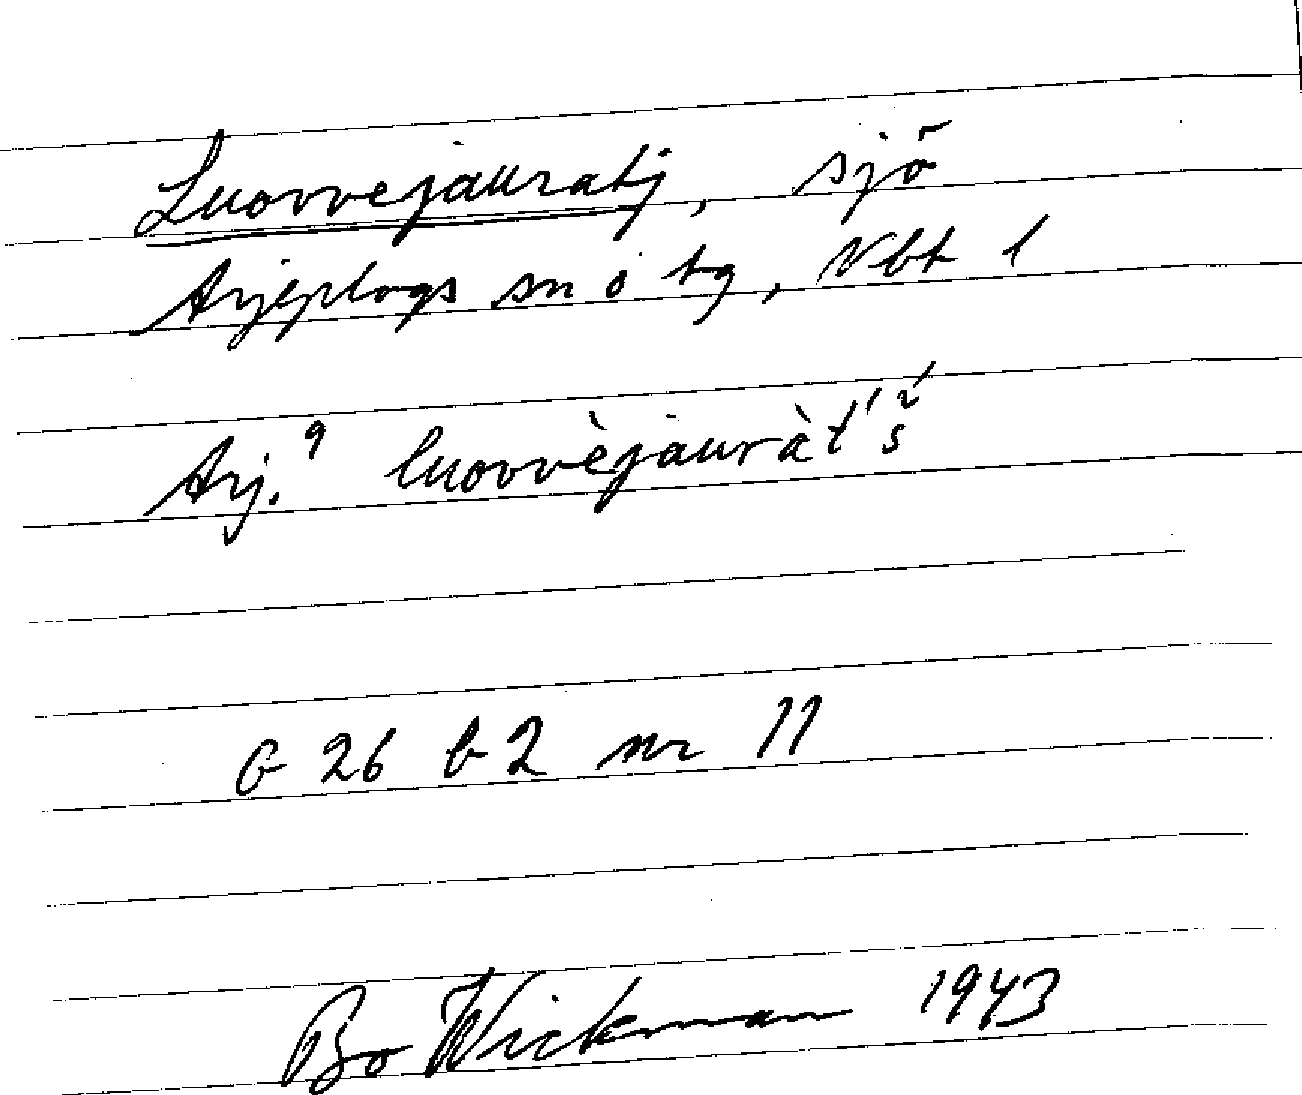 Luovvejauratj, sjö
Arjeplogs sn o tg, Vbt l
Arj.⁹ luovvèjauràt'š́
G 26 b 2 nr 11
Bo Wickman 1943